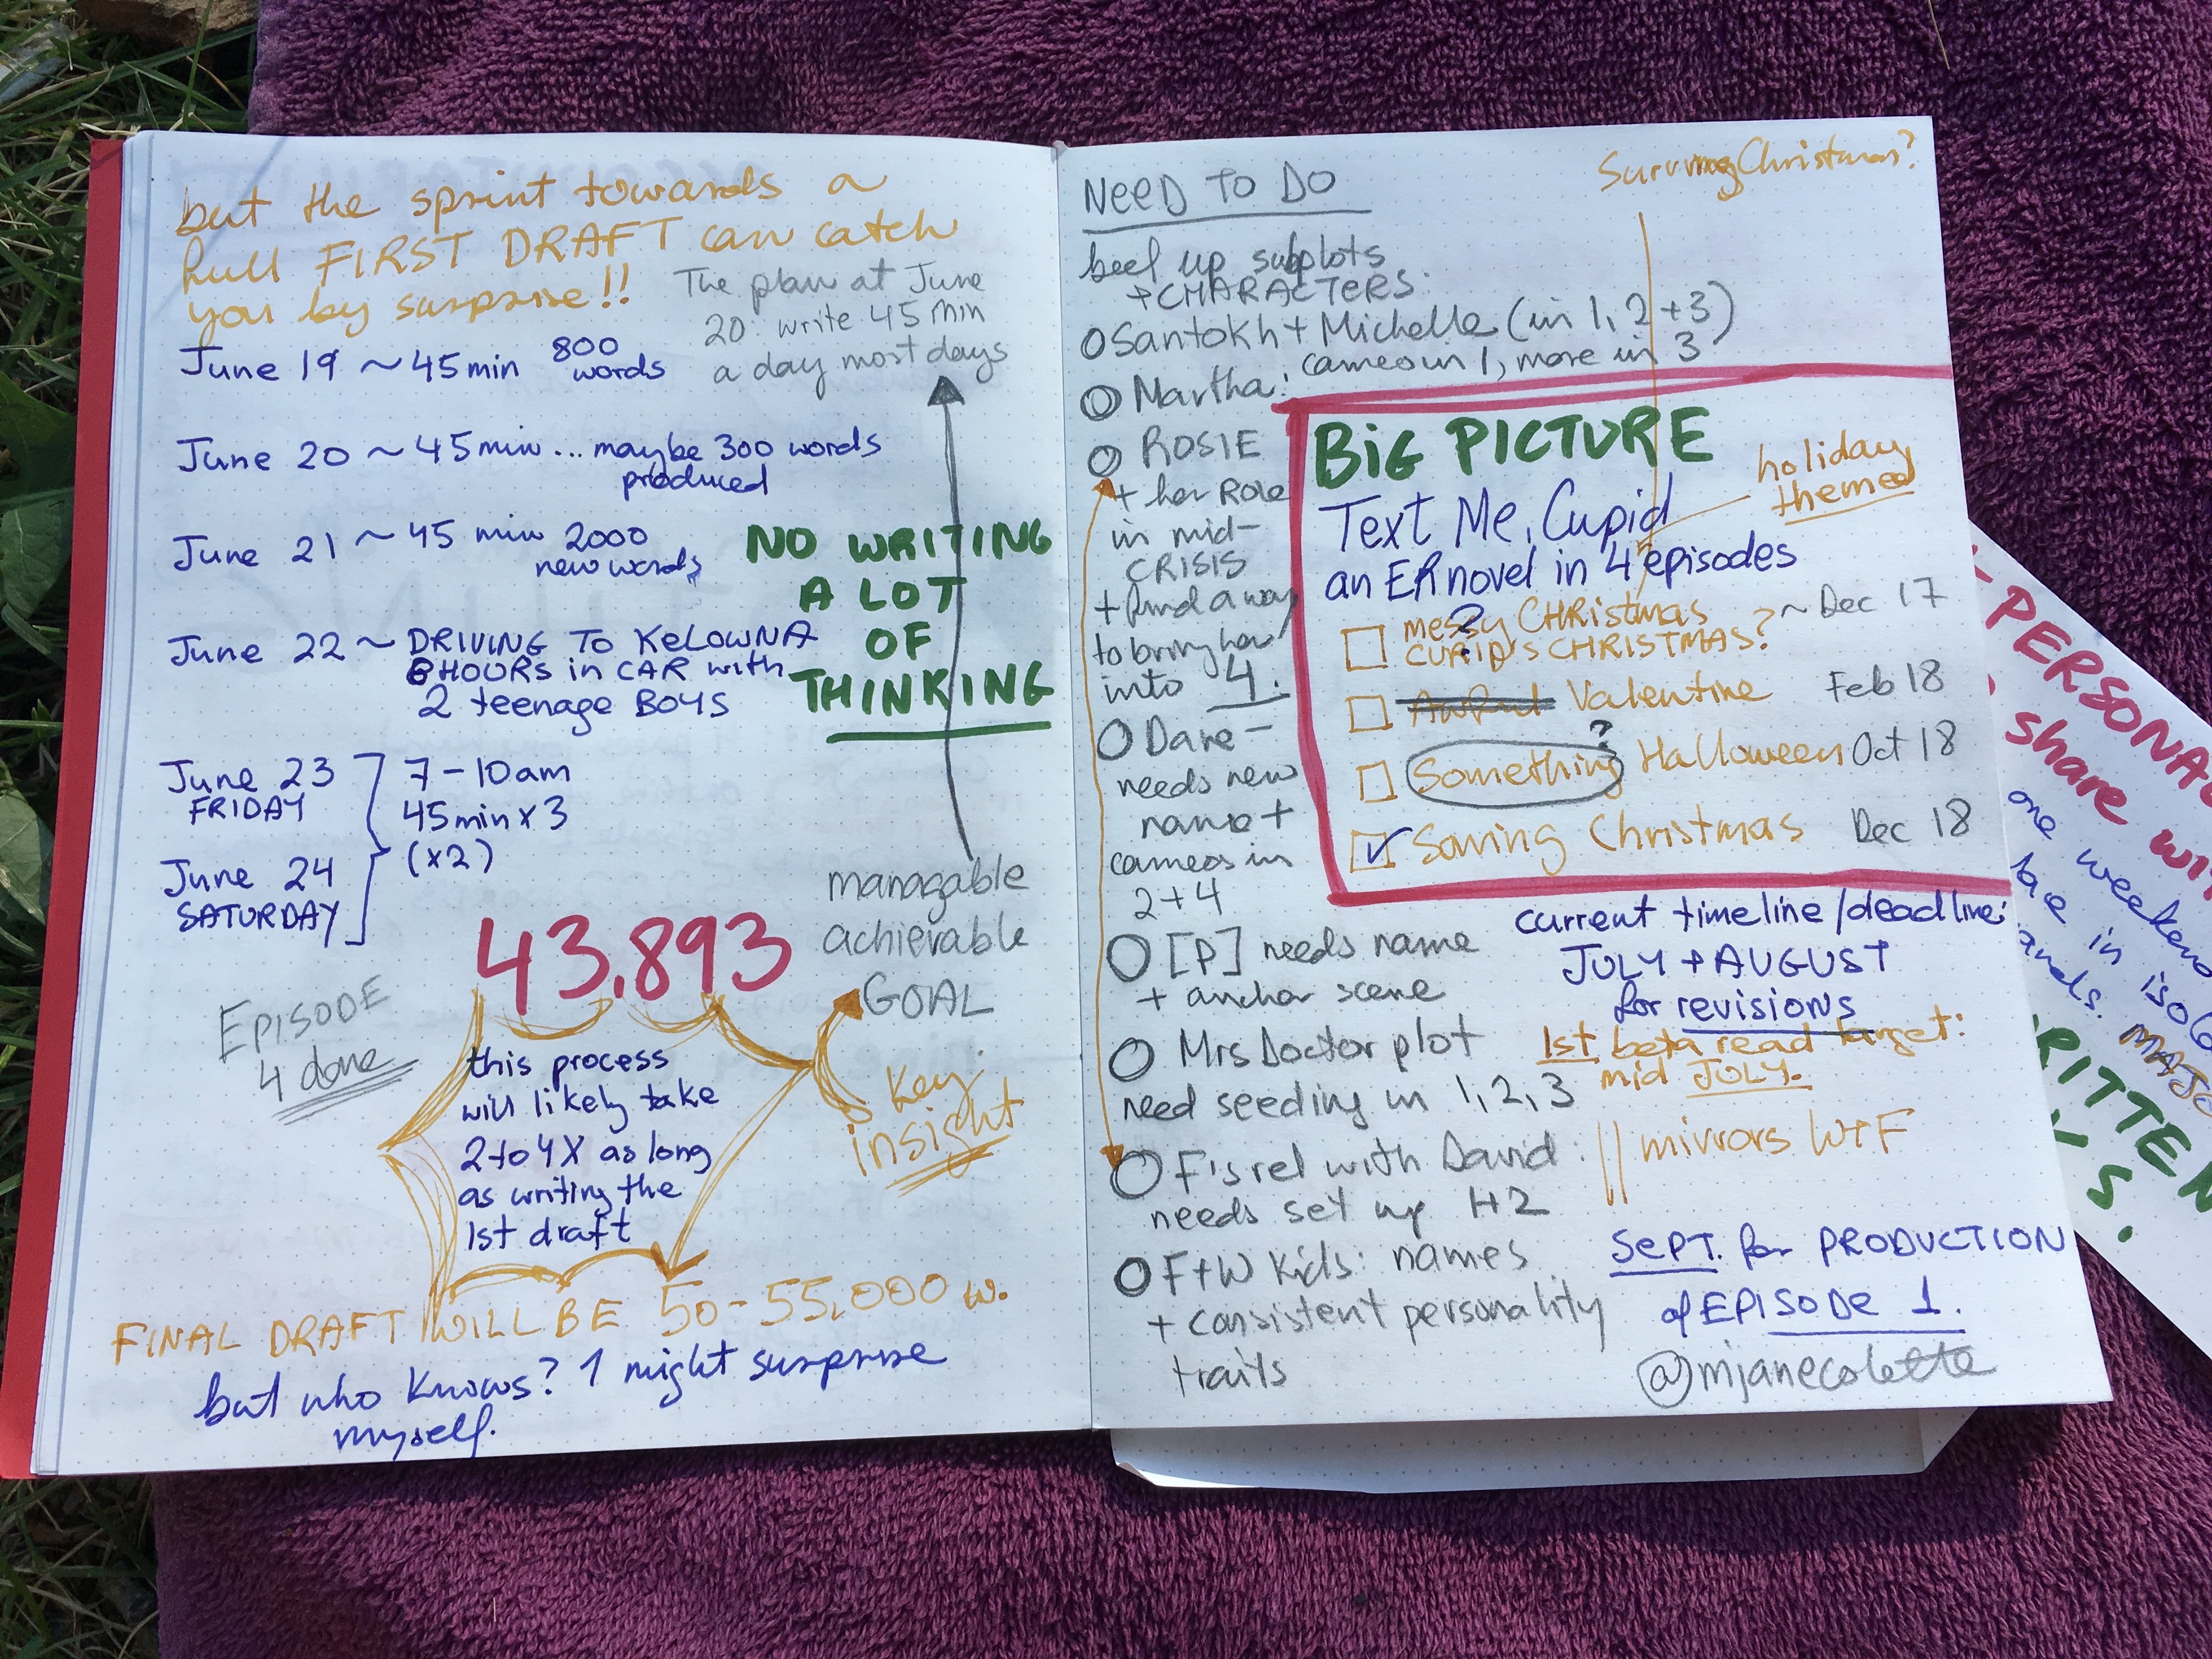 but the sprint towards a
full FIRST DRAFT can catch
you by surprise!!
The plan at June
20: write 45 min
a day most days
June 19 ~ 45 min 800
words
June 20 ~ 45 min ... maybe 300 words
produced
June 21 ~ 45 min 2000
new words
NO WRITING
A LOT
OF
THINKING
June 22 ~ DRIVING TO KELOWNA
8 HOURS in CAR with
2 teenage BOYS
June 23
FRIDAY
June 24
SATURDAY
7-10am
45 min x 3
(x2)
managable
achievable
GOAL
43,893
EPISODE
4 done
this process
will likely take
2 to 4X as long
as writing the
1st draft
Key
insight
FINAL DRAFT WILL BE 50-55,000 w.
but who knows? I might surprise
myself.
NEED TO DO
Surviving Christmas?
beef up subplots
+ CHARACTERS:
Santokh + Michelle (in 1, 2 + 3)
cameo in 1, more in 3
Martha:
ROSIE
+ her Role
in mid-
CRISIS
+ find a way
to bring her
into 4.
Dave -
needs new
name +
cameos in
2+4
[P] needs name
+ anchor scene
Mrs Doctor plot
need seeding in 1, 2, 3
F's rel with David:
needs set up H2
F+W Kids: names
+ consistent personality
traits
BIG PICTURE
holiday
themed
Text Me, Cupid
an ER novel in 4 episodes
Messy CHRISTMAS ? ~ Dec 17
CUPID'S CHRISTMAS?
Awful Valentine Feb 18
Something ? Halloween Oct 18
Saving Christmas Dec 18
current timeline/deadline:
JULY + AUGUST
for revisions
1st beta read target:
mid JULY.
mirrors WTF
SEPT. for PRODUCTION
of EPISODE 1.
@mjanecolette
share
one weekend
in
ands.